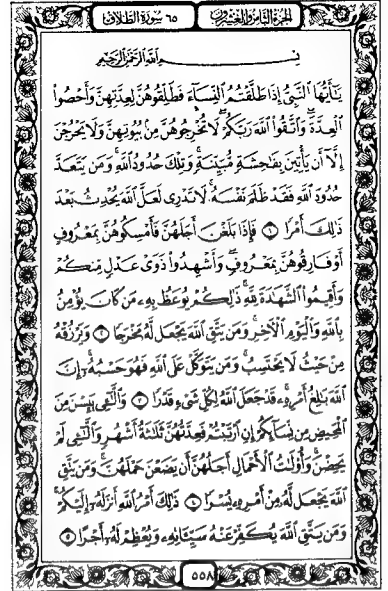 الجزء الثامن والعشرون
٦٥ سورة الطلاق
بِسْمِ ٱللَّهِ ٱلرَّحْمَٰنِ ٱلرَّحِيمِ
يَٰٓأَيُّهَا ٱلنَّبِىُّ إِذَا طَلَّقْتُمُ ٱلنِّسَآءَ فَطَلِّقُوهُنَّ لِعِدَّتِهِنَّ وَأَحْصُوا۟
ٱلْعِدَّةَ ۖ وَٱتَّقُوا۟ ٱللَّهَ رَبَّكُمْ ۖ لَا تُخْرِجُوهُنَّ مِنۢ بُيُوتِهِنَّ وَلَا يَخْرُجْنَ
إِلَّآ أَن يَأْتِينَ بِفَٰحِشَةٍ مُّبَيِّنَةٍ ۚ وَتِلْكَ حُدُودُ ٱللَّهِ ۚ وَمَن يَتَعَدَّ
حُدُودَ ٱللَّهِ فَقَدْ ظَلَمَ نَفْسَهُۥ ۚ لَا تَدْرِى لَعَلَّ ٱللَّهَ يُحْدِثُ بَعْدَ
ذَٰلِكَ أَمْرًا ١ فَإِذَا بَلَغْنَ أَجَلَهُنَّ فَأَمْسِكُوهُنَّ بِمَعْرُوفٍ
أَوْ فَارِقُوهُنَّ بِمَعْرُوفٍ وَأَشْهِدُوا۟ ذَوَىْ عَدْلٍ مِّنكُمْ
وَأَقِيمُوا۟ ٱلشَّهَٰدَةَ لِلَّهِ ۚ ذَٰلِكُمْ يُوعَظُ بِهِۦ مَن كَانَ يُؤْمِنُ
بِٱللَّهِ وَٱلْيَوْمِ ٱلْءَاخِرِ ۚ وَمَن يَتَّقِ ٱللَّهَ يَجْعَل لَّهُۥ مَخْرَجًا ٢ وَيَرْزُقْهُ
مِنْ حَيْثُ لَا يَحْتَسِبُ ۚ وَمَن يَتَوَكَّلْ عَلَى ٱللَّهِ فَهُوَ حَسْبُهُۥٓ ۚ إِنَّ
ٱللَّهَ بَٰلِغُ أَمْرِهِۦ ۚ قَدْ جَعَلَ ٱللَّهُ لِكُلِّ شَىْءٍ قَدْرًا ٣ وَٱلَّٰٓـِٔى يَئِسْنَ مِنَ
ٱلْمَحِيضِ مِن نِّسَآئِكُمْ إِنِ ٱرْتَبْتُمْ فَعِدَّتُهُنَّ ثَلَٰثَةُ أَشْهُرٍ وَٱلَّٰٓـِٔى لَمْ
يَحِضْنَ ۚ وَأُو۟لَٰتُ ٱلْأَحْمَالِ أَجَلُهُنَّ أَن يَضَعْنَ حَمْلَهُنَّ ۚ وَمَن يَتَّقِ
ٱللَّهَ يَجْعَل لَّهُۥ مِنْ أَمْرِهِۦ يُسْرًا ٤ ذَٰلِكَ أَمْرُ ٱللَّهِ أَنزَلَهُۥٓ إِلَيْكُمْ ۚ
وَمَن يَتَّقِ ٱللَّهَ يُكَفِّرْ عَنْهُ سَيِّـَٔاتِهِۦ وَيُعْظِمْ لَهُۥٓ أَجْرًا ٥
٥٥٨